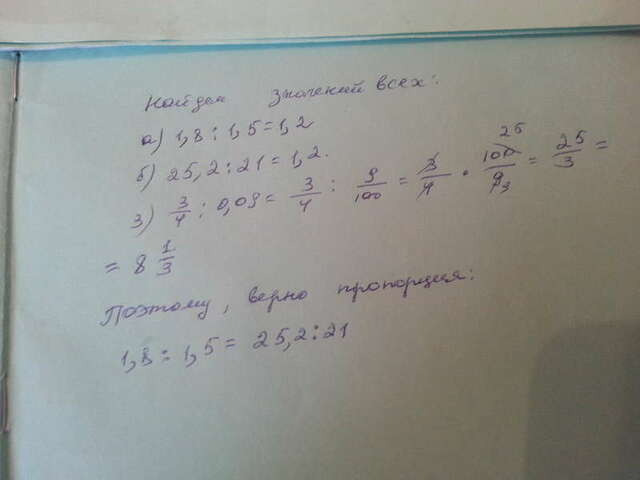 Найдем значений всех:
а) 1,8 : 1,5 = 1,2
б) 25,2 : 21 = 1,2.
3) 3/4 : 0,09 = 3/4 : 9/100 = 3/4 · 100 25/9 3 = 25/3 =
= 8 1/3
Поэтому, верно пропорция:
1,8 : 1,5 = 25,2 : 21